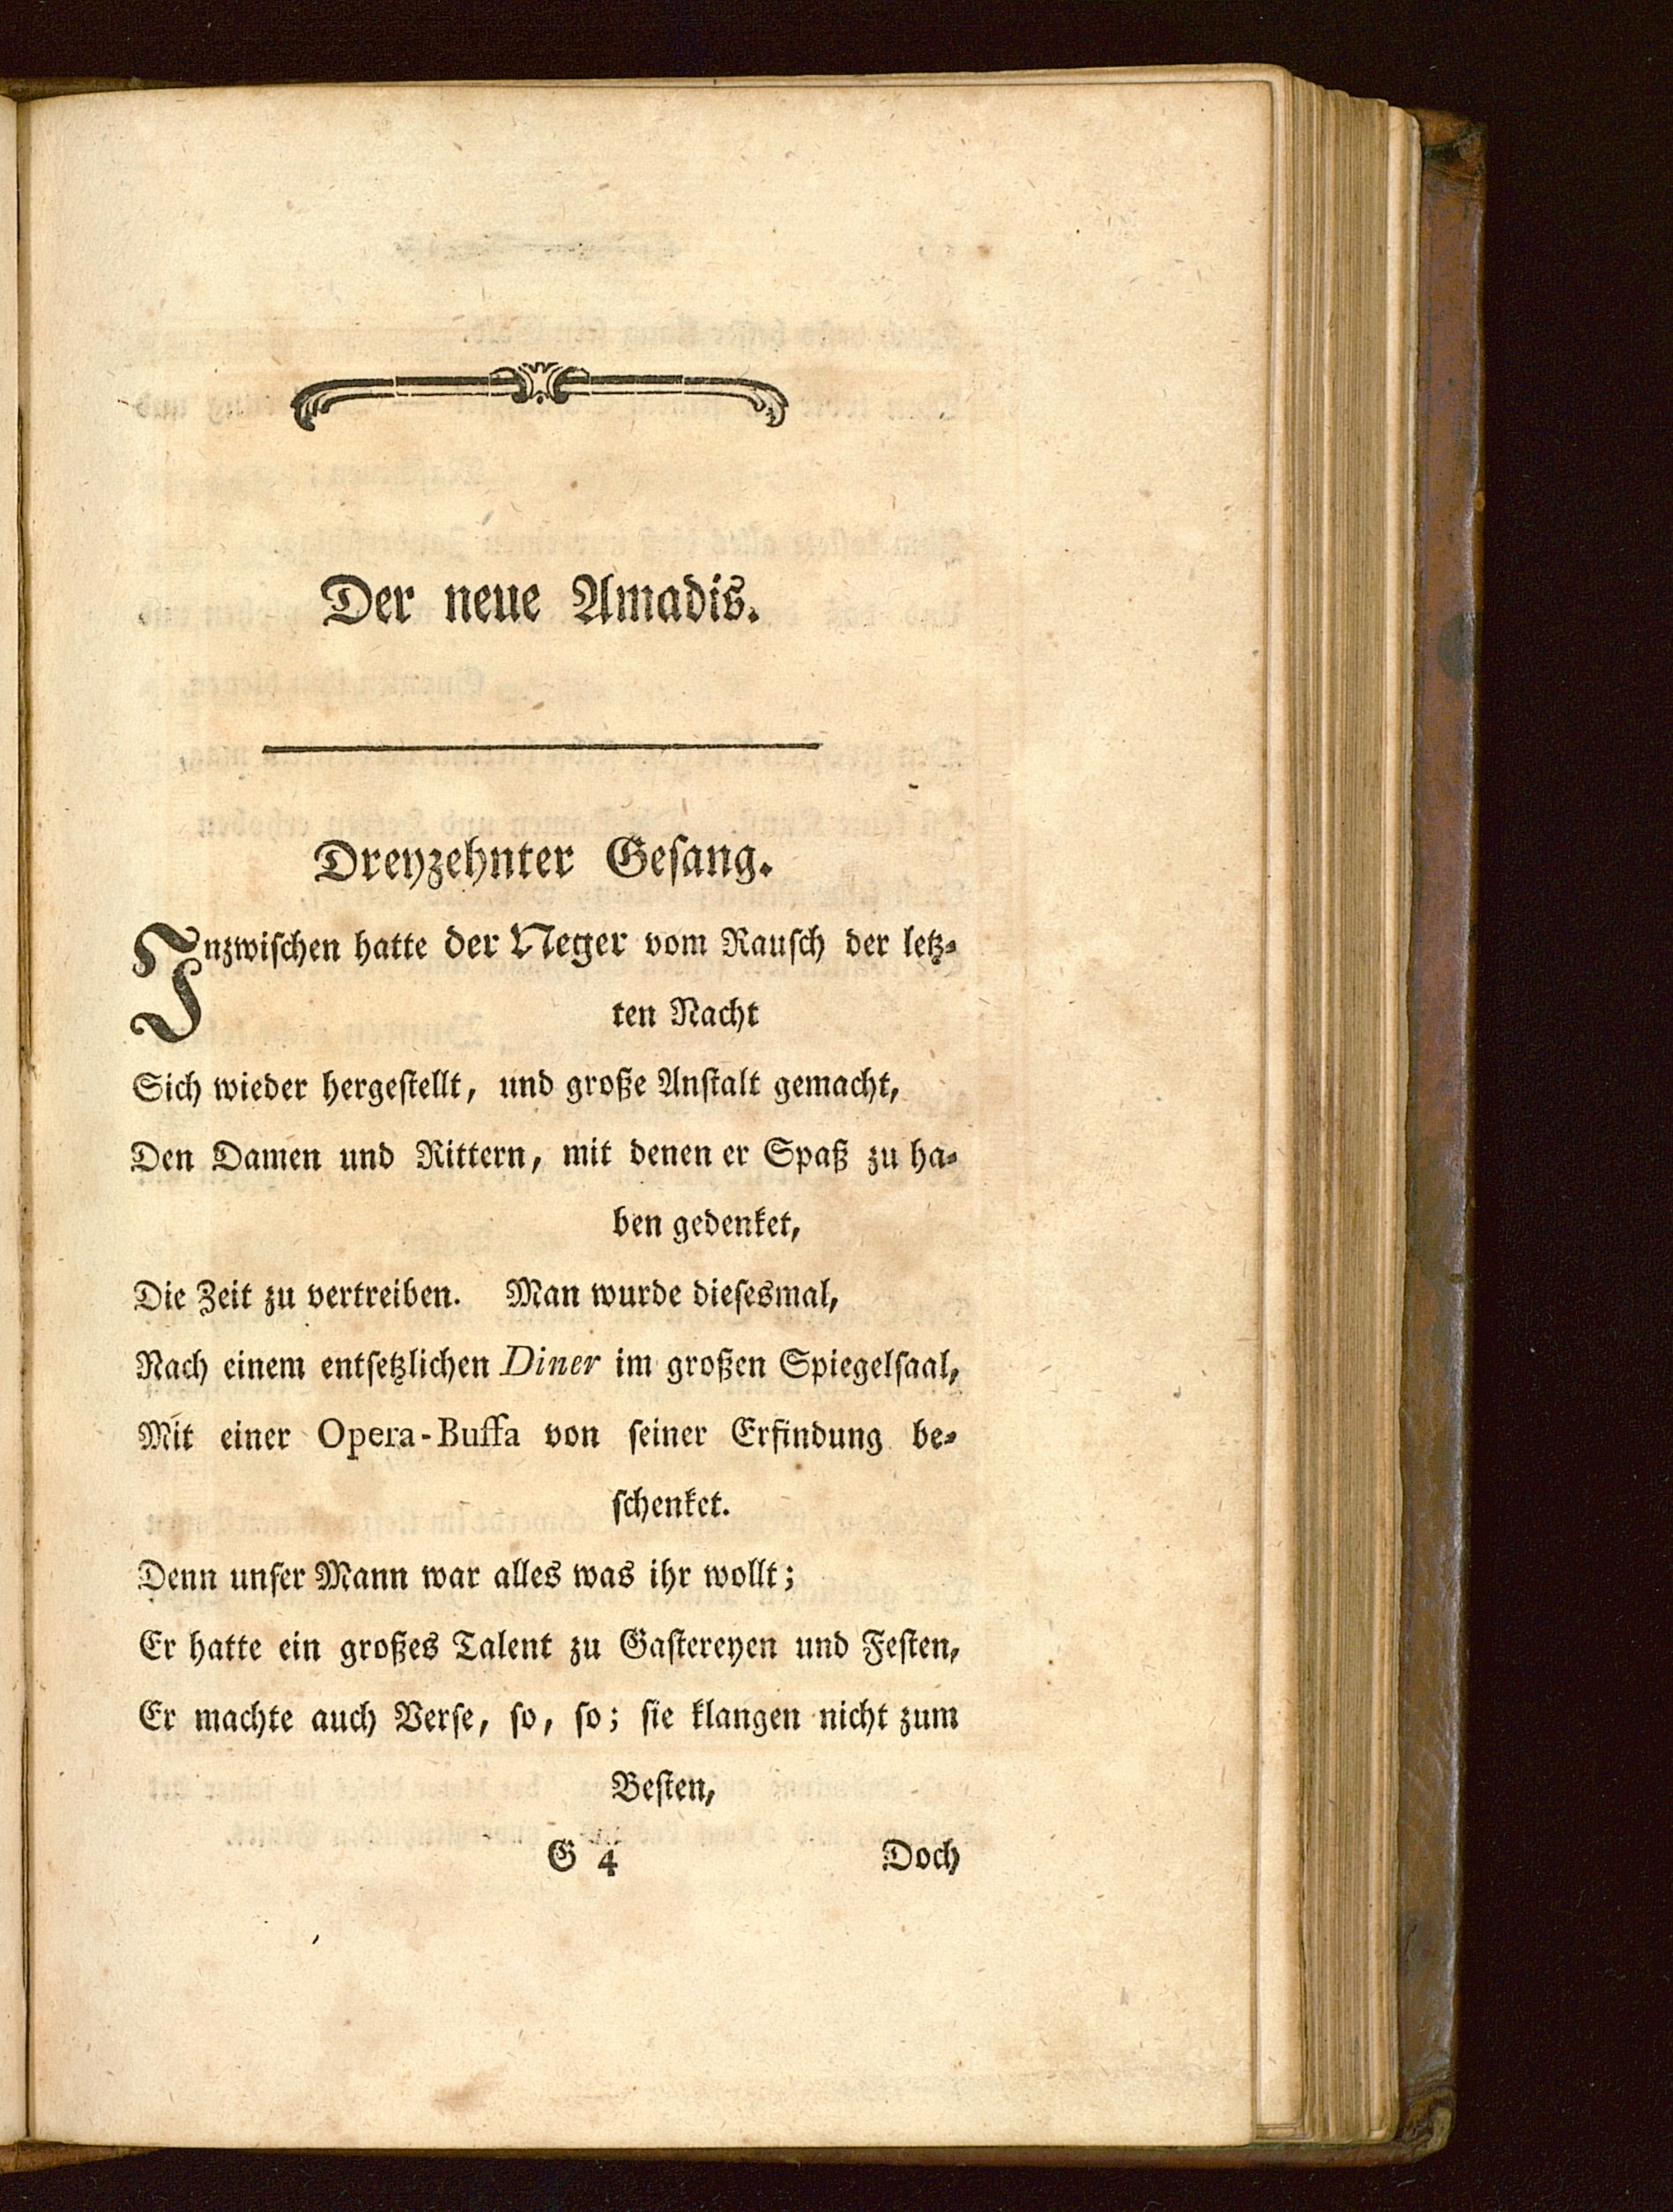 Der neue Amadis.
Dreyzehnter Gesang.
Inzwischen hatte der Neger vom Rausch der letz-
ten Nacht
Sich wieder hergestellt, und große Anstalt gemacht,
Den Damen und Rittern, mit denen er Spaß zu ha-
ben gedenket,
Die Zeit zu vertreiben. Man wurde diesesmal,
Nach einem entsetzlichen Diner im großen Spiegelsaal,
Mit einer Opera-Buffa von seiner Erfindung be-
schenket.
Denn unser Mann war alles was ihr wollt;
Er hatte ein großes Talent zu Gastereyen und Festen,
Er machte auch Verse, so, so; sie klangen nicht zum
Besten,
G 4 Doch